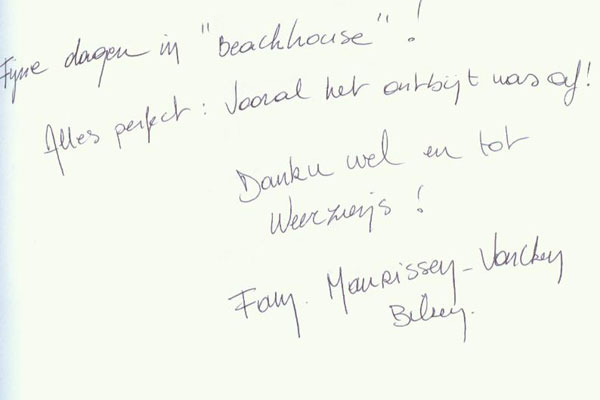 Fijne dagen in "Beachhouse" !
Alles perfect : Vooral het ontbijt was af!
Danku wel en tot
Weerziens !
Fam. Maurissey - Vanckey